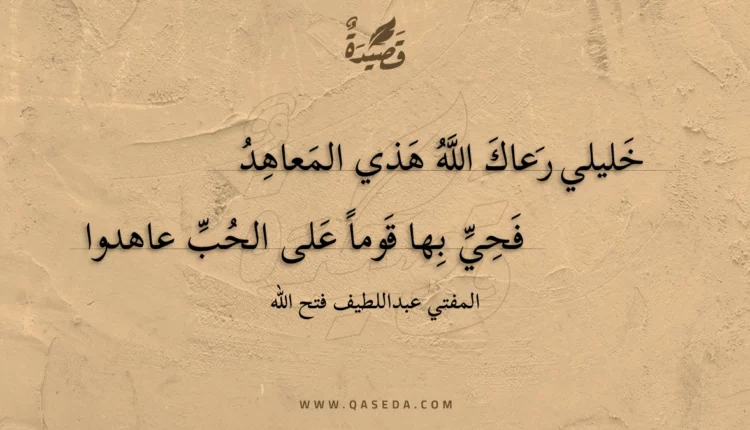 قَصِيدَةٌ
خَليلي رَعاكَ اللَّهُ هَذي المَعاهِدُ
فَحِيِّ بِها قَوماً عَلى الحُبِّ عاهدوا
المفتي عبداللطيف فتح الله
WWW.QASEDA.COM